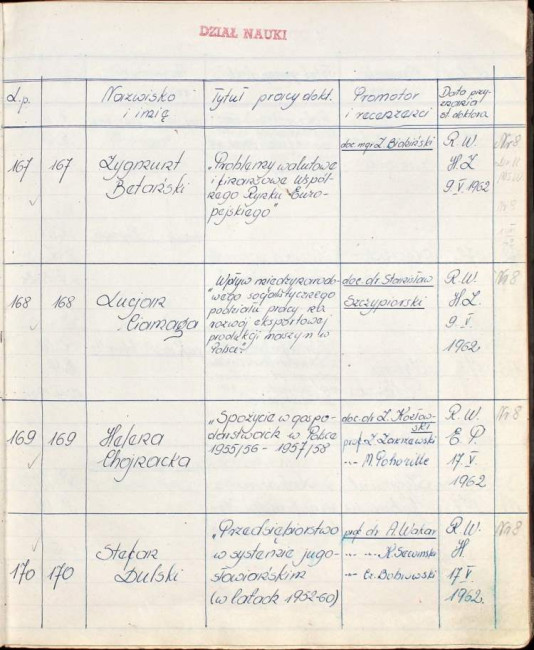 DZIAŁ NAUKI
L.p. Nazwisko i imię Tytuł pracy dokt. Promotor i recenzenci Data przyznania st. doktora
167 167 Zygmunt Betański
„Problemy walutowe
i finansowe Wspól-
nego Rynku Euro-
pejskiego"
doc. mgr Z.
R.W.
H.Z.
9 V 1962
Nr 8
168 168 Lucjan Ciamaga
„Wpływ międzynarodo-
wego socjalistycznego
podziału pracy na
rozwój eksportowej
produkcji maszyn w
Polsce"
doc. dr Stanisław
Szczypiorski
R.W.
H.Z.
9 V.
1962
Nr 8
169 169 Helena Chojnacka
„Spożycie w gospo-
darstwach w Polsce
1955/56 - 1957/58
doc. dr L. Kozłow-
ski
prof.
-"- M. Pohorille
R.W.
E.P.
17 V.
1962
Nr 8
170 170 Stefan Dulski
„Przedsiębiorstwo
w systemie jugo-
słowiańskim
(w latach 1952-60)
prof. dr A. Wakar
-"- -"- K. Secomski
-"- Cz. Bobrowski
R.W.
H
17 V
1962.
Nr 8